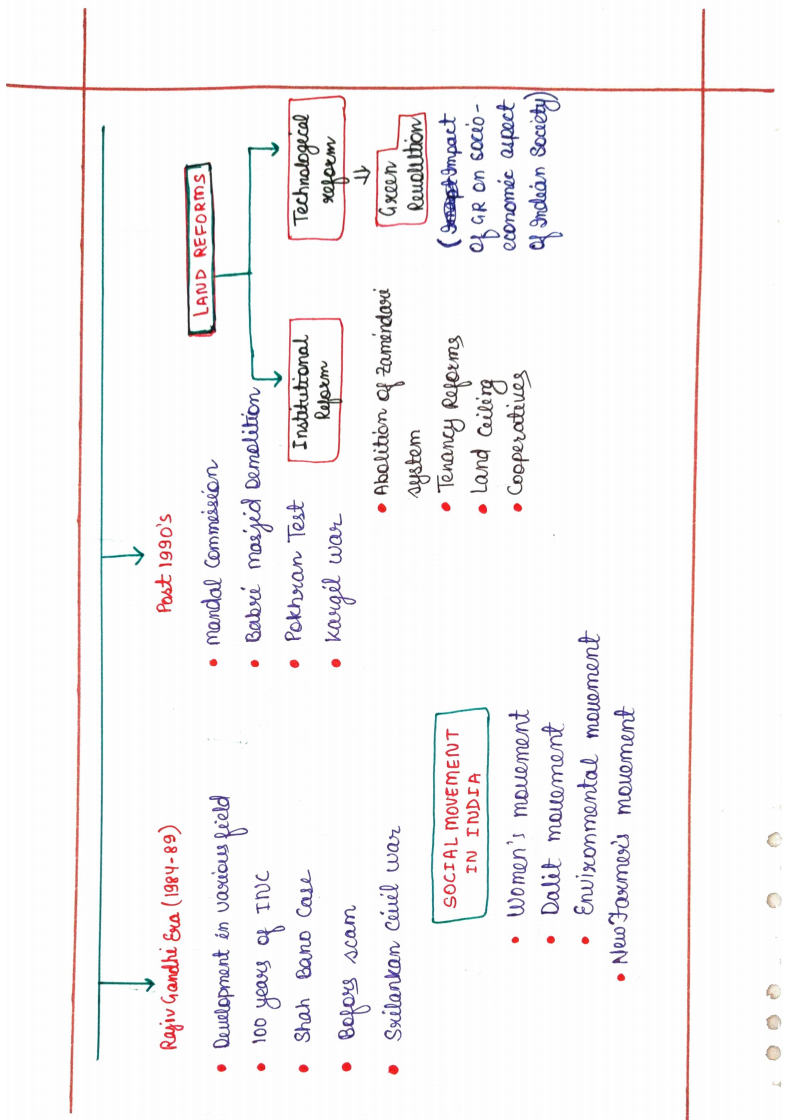 Rajiv Gandhi Era (1984-89)
• Development in various field
• 100 years of INC
• Shah Bano Case
• Bofors scam
• Srilankan civil war
Post 1990's
• Mandal Commission
• Babri masjid Demolition
• Pokhran Test
• Kargil war
LAND REFORMS
Institutional
Reform
• Abolition of Zamindari
system
• Tenancy Reforms
• Land Ceiling
• Cooperatives
Technological
reform
⇓
Green
Revolution
(Impact
of GR on socio-
economic aspect
of Indian Society)
SOCIAL MOVEMENT
IN INDIA
• Women's movement
• Dalit movement
• Environmental movement
• New Farmer's movement